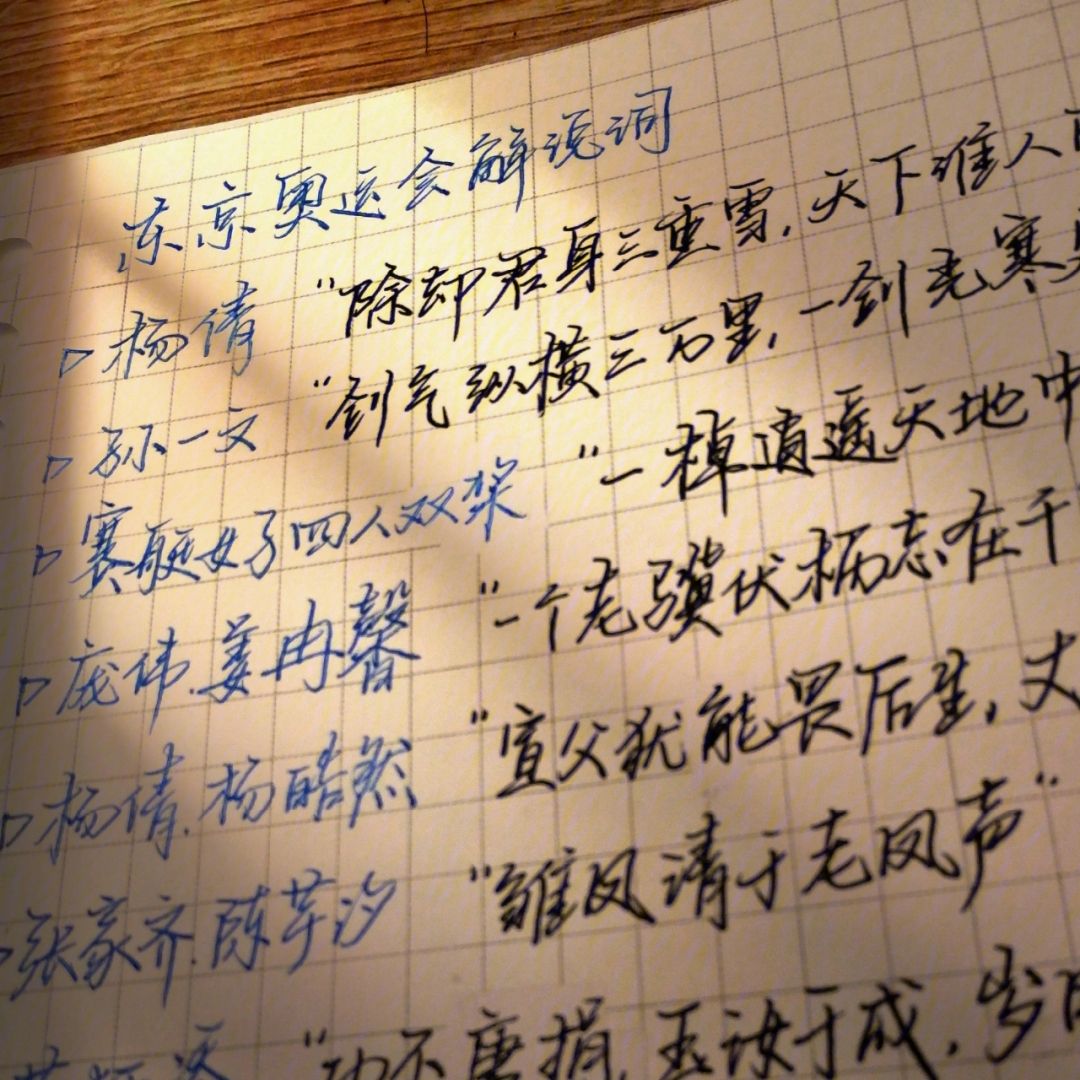 东京奥运会解说词
▷ 杨倩 "除却君身三重雪,天下谁人
▷ 孙一文 "剑气纵横三万里,一剑光寒
▷ 赛艇女子四人双桨 "一棹逍遥天地中
▷ 庞伟.姜冉馨 "一个老骥伏枥志在千
▷ 杨倩.杨皓然 "宣父犹能畏后生,丈
▷ 张家齐.陈芋汐 "雏凤清于老凤声"
"功不唐捐,玉汝于成,岁